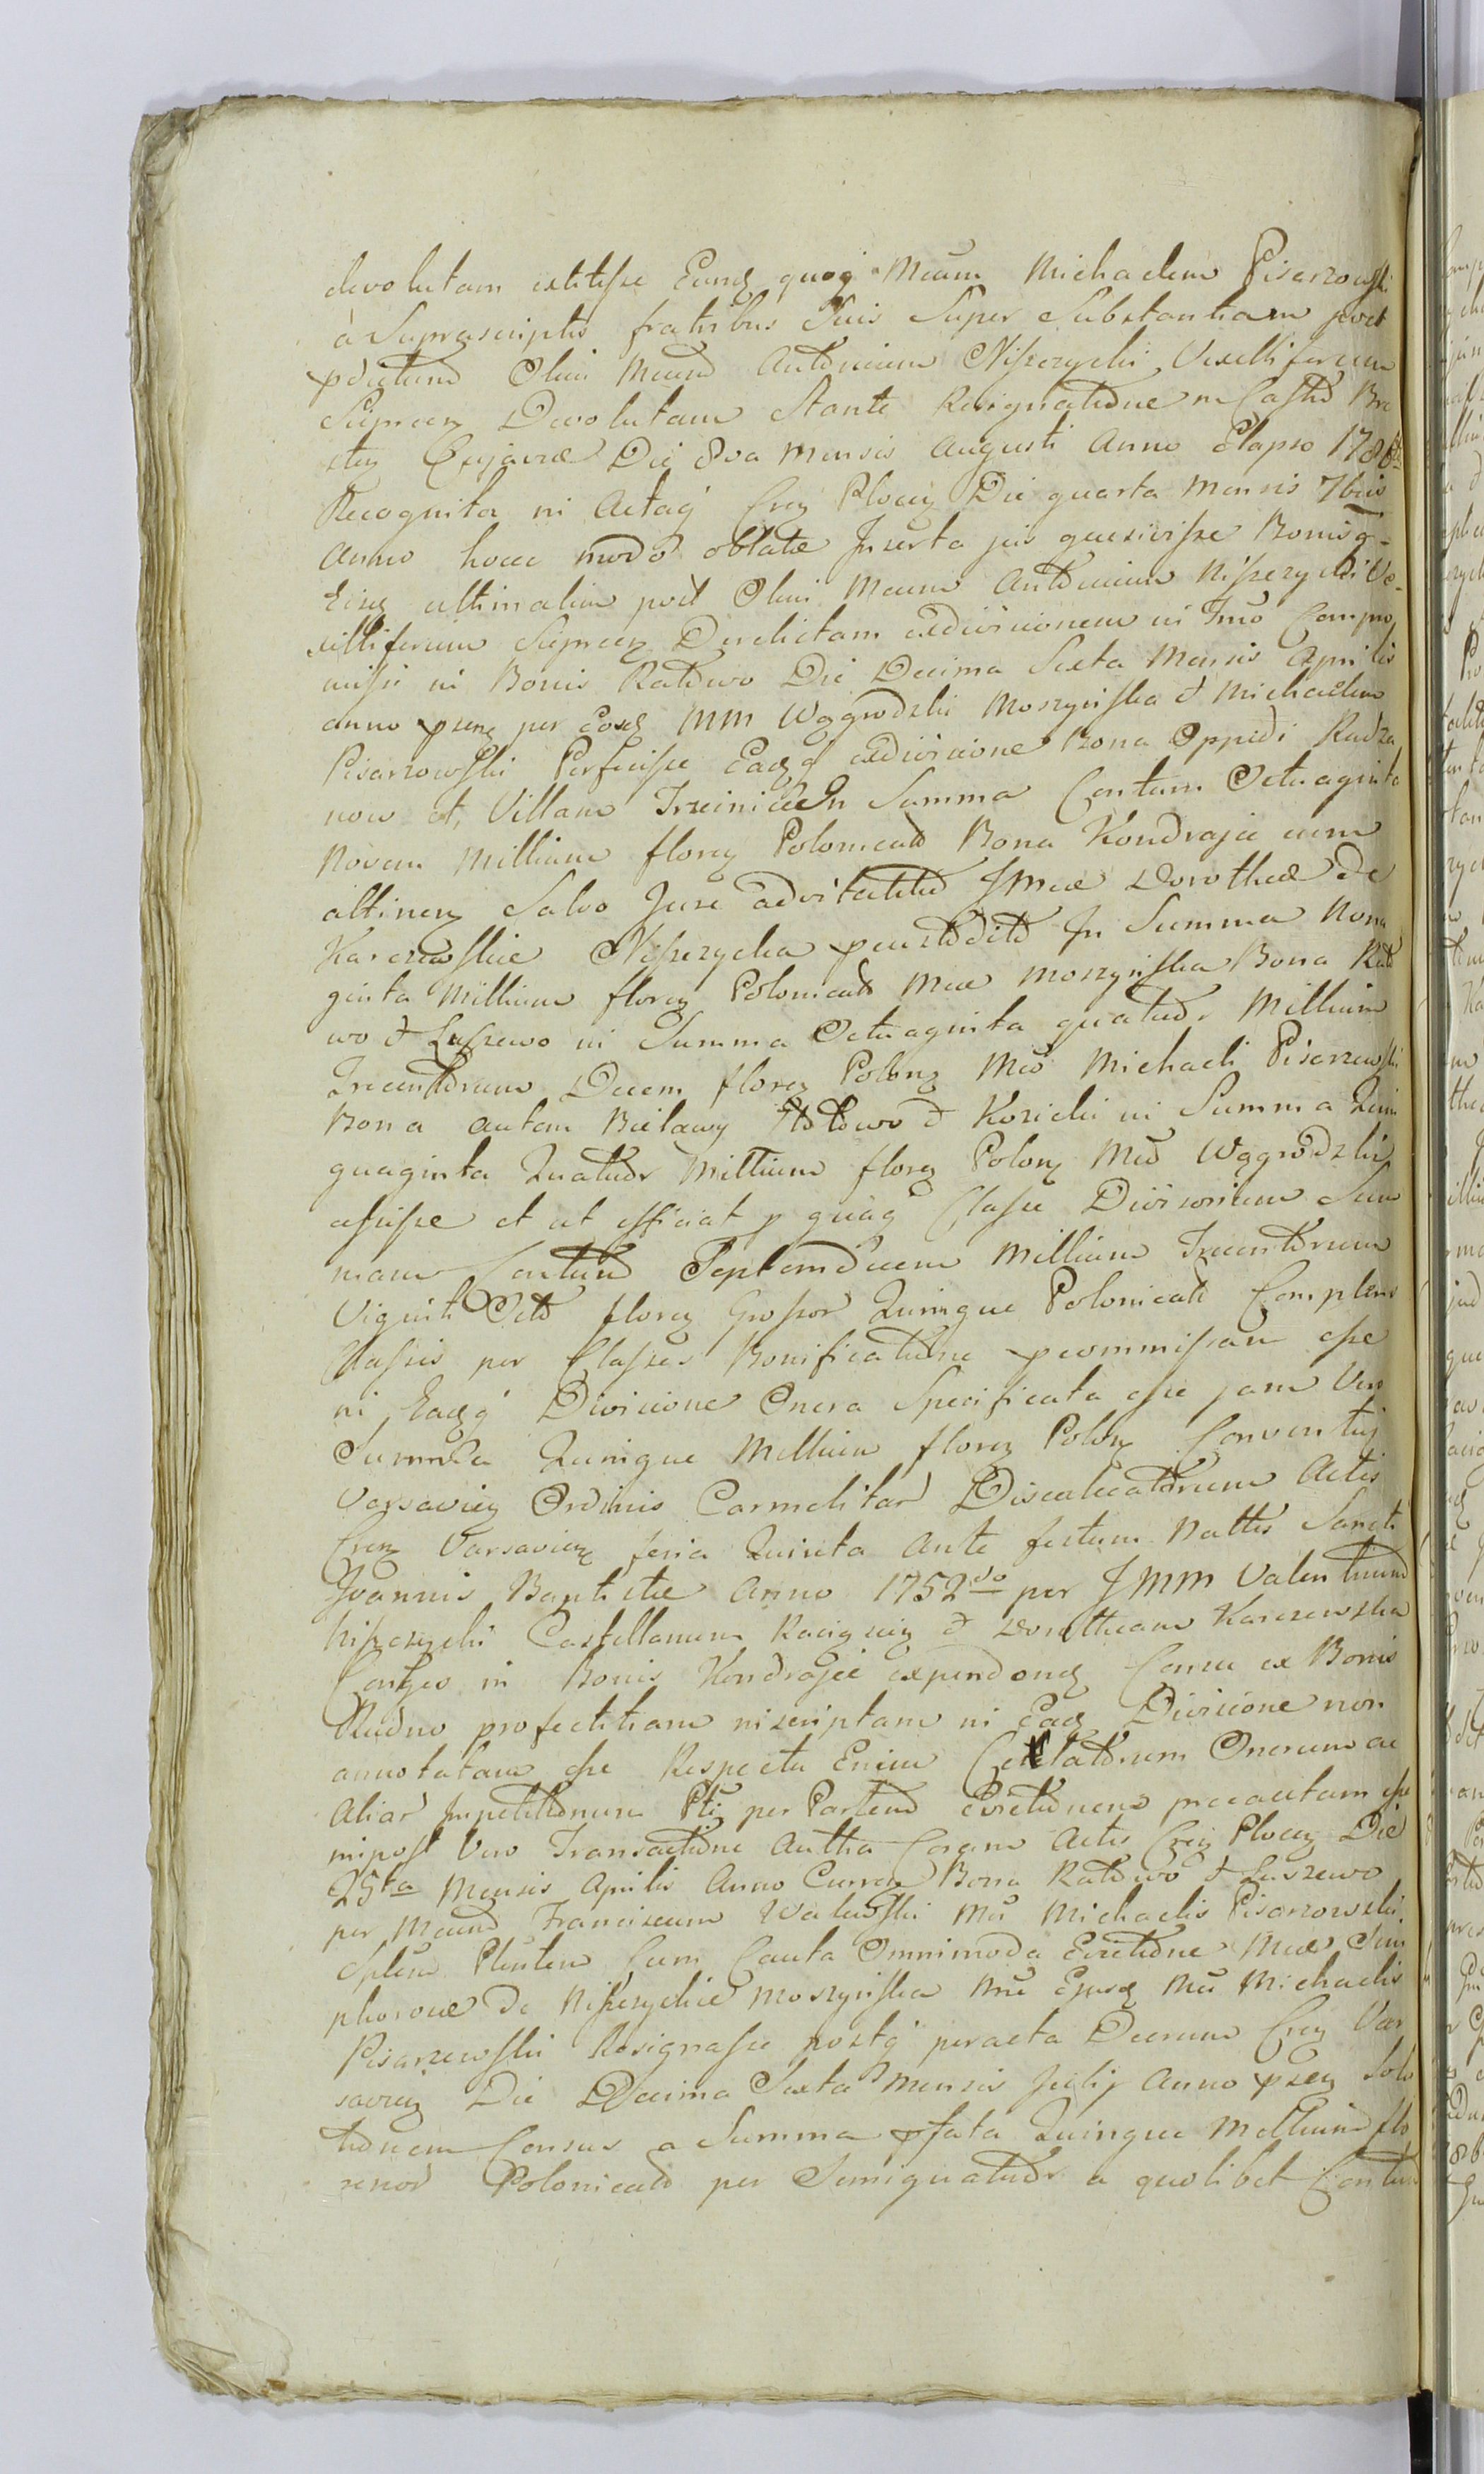 devolutam extitisse Eund quoq Mcum Michaelem Pisarzowski
à Suprascriptis fratribus Suis Super Substantiam post
pdictum Olim Mcum Antonium Nisczycki Vexilliferum
Siepcen Devolutam Stante Resignatione in Castro Bre
sten Cujaviæ Die 8va Mensis Augusti Anno Elapso 1786
Recognita ni Actaq Cren Plocen Die quarta Mensis 7bris
Anno hocce modo oblatæ Inserta jus quæsivisse Bonisq
Eisq ultimatim post Olim Mcum Antonium Nisczycki Ve
xilliferum Siepcen Derelictam exdivisionem in Imo Compro
missi in Bonis Ratowo Die Decima Sexta Mensis Aprilis
anno psen per Eosd MM Wągrodzki Moszyńska et Michaelem
Pisarzowski Perfecisse Eadq exdivisione Bona Oppidi Radza
now et Villam Trzcinice In Summa Centum Octuaginta
Novem Millium floren Polonicalu Bona Kondrajec cum
attinen Salvo Jure advitalitio JMcæ Dorotheæ de
Karczewskie Nisczycka pcustodito In Summa Nona
ginta Millium floren Polonicalu Mcæ Moszyńska Bona Rato
wo et Luszewo in Summa Octuaginta quatuor Millium
Trecentorum Decem floren Polon Mco Michaeli Pisarzewski
Bona autem Bielawy Kozicki in Summa Quin
quaginta Quatuor Millium floren Polon Mco Wągrodzki
cessisse et ut efficiat p quaq Classe Divisorium Sum
mam Centum Septemdecem Millium Trecentorum
Viginti Octo floren Grossor Quinque Polonicalu Complens
Classis per Classes Bonificatione pcommissam esse
in Eadq Divisione Onera Specificata esse jam Vero
Summa Quinque Millium floren Polon Conventuj
Varsavien Ordinis Carmelitar Discalceatorum Actis
Cren Varsavien feria Quinta Ante festum Nattis Sancti
Joannis Baptistæ Anno 1752do per JMM Valentinum
Nisczycki Castellanum Raciązen et Dorotheam Karczewska
Conges in Bonis Kondrajec expendend Censu ex Bonis
Rudno profectitiam inscriptam in Ead Divisione non
annotatam esse Respectu Enim Celatorum Onerum ac
Aliar Impetitionum Pti per Partem Evictionem præcautam esse
inpost Vero Transactione Autha Coram Actis Cren Plocen Die
25ta Mensis Aprilis Anno Curren Bona Ratowo et Luszewo
per Mcum Franciscum Walewski Mci Michaelis Pisarzowski
Splem Plentem Cum Cauta Omnimoda Evictione Mcæ Sim
phorosæ de Nisczyckie Moszyńska Ejusd Mci Michaelis
Pisarzewski Resignasse postq peracta Decreum Cren Var
savien Die Decima Sexta Mensis Julij Anno psen Solu
tionem Census a Summa pfata Quinque Millium flo
renor Polonicalu per Semiquatuor a quolibet Centum